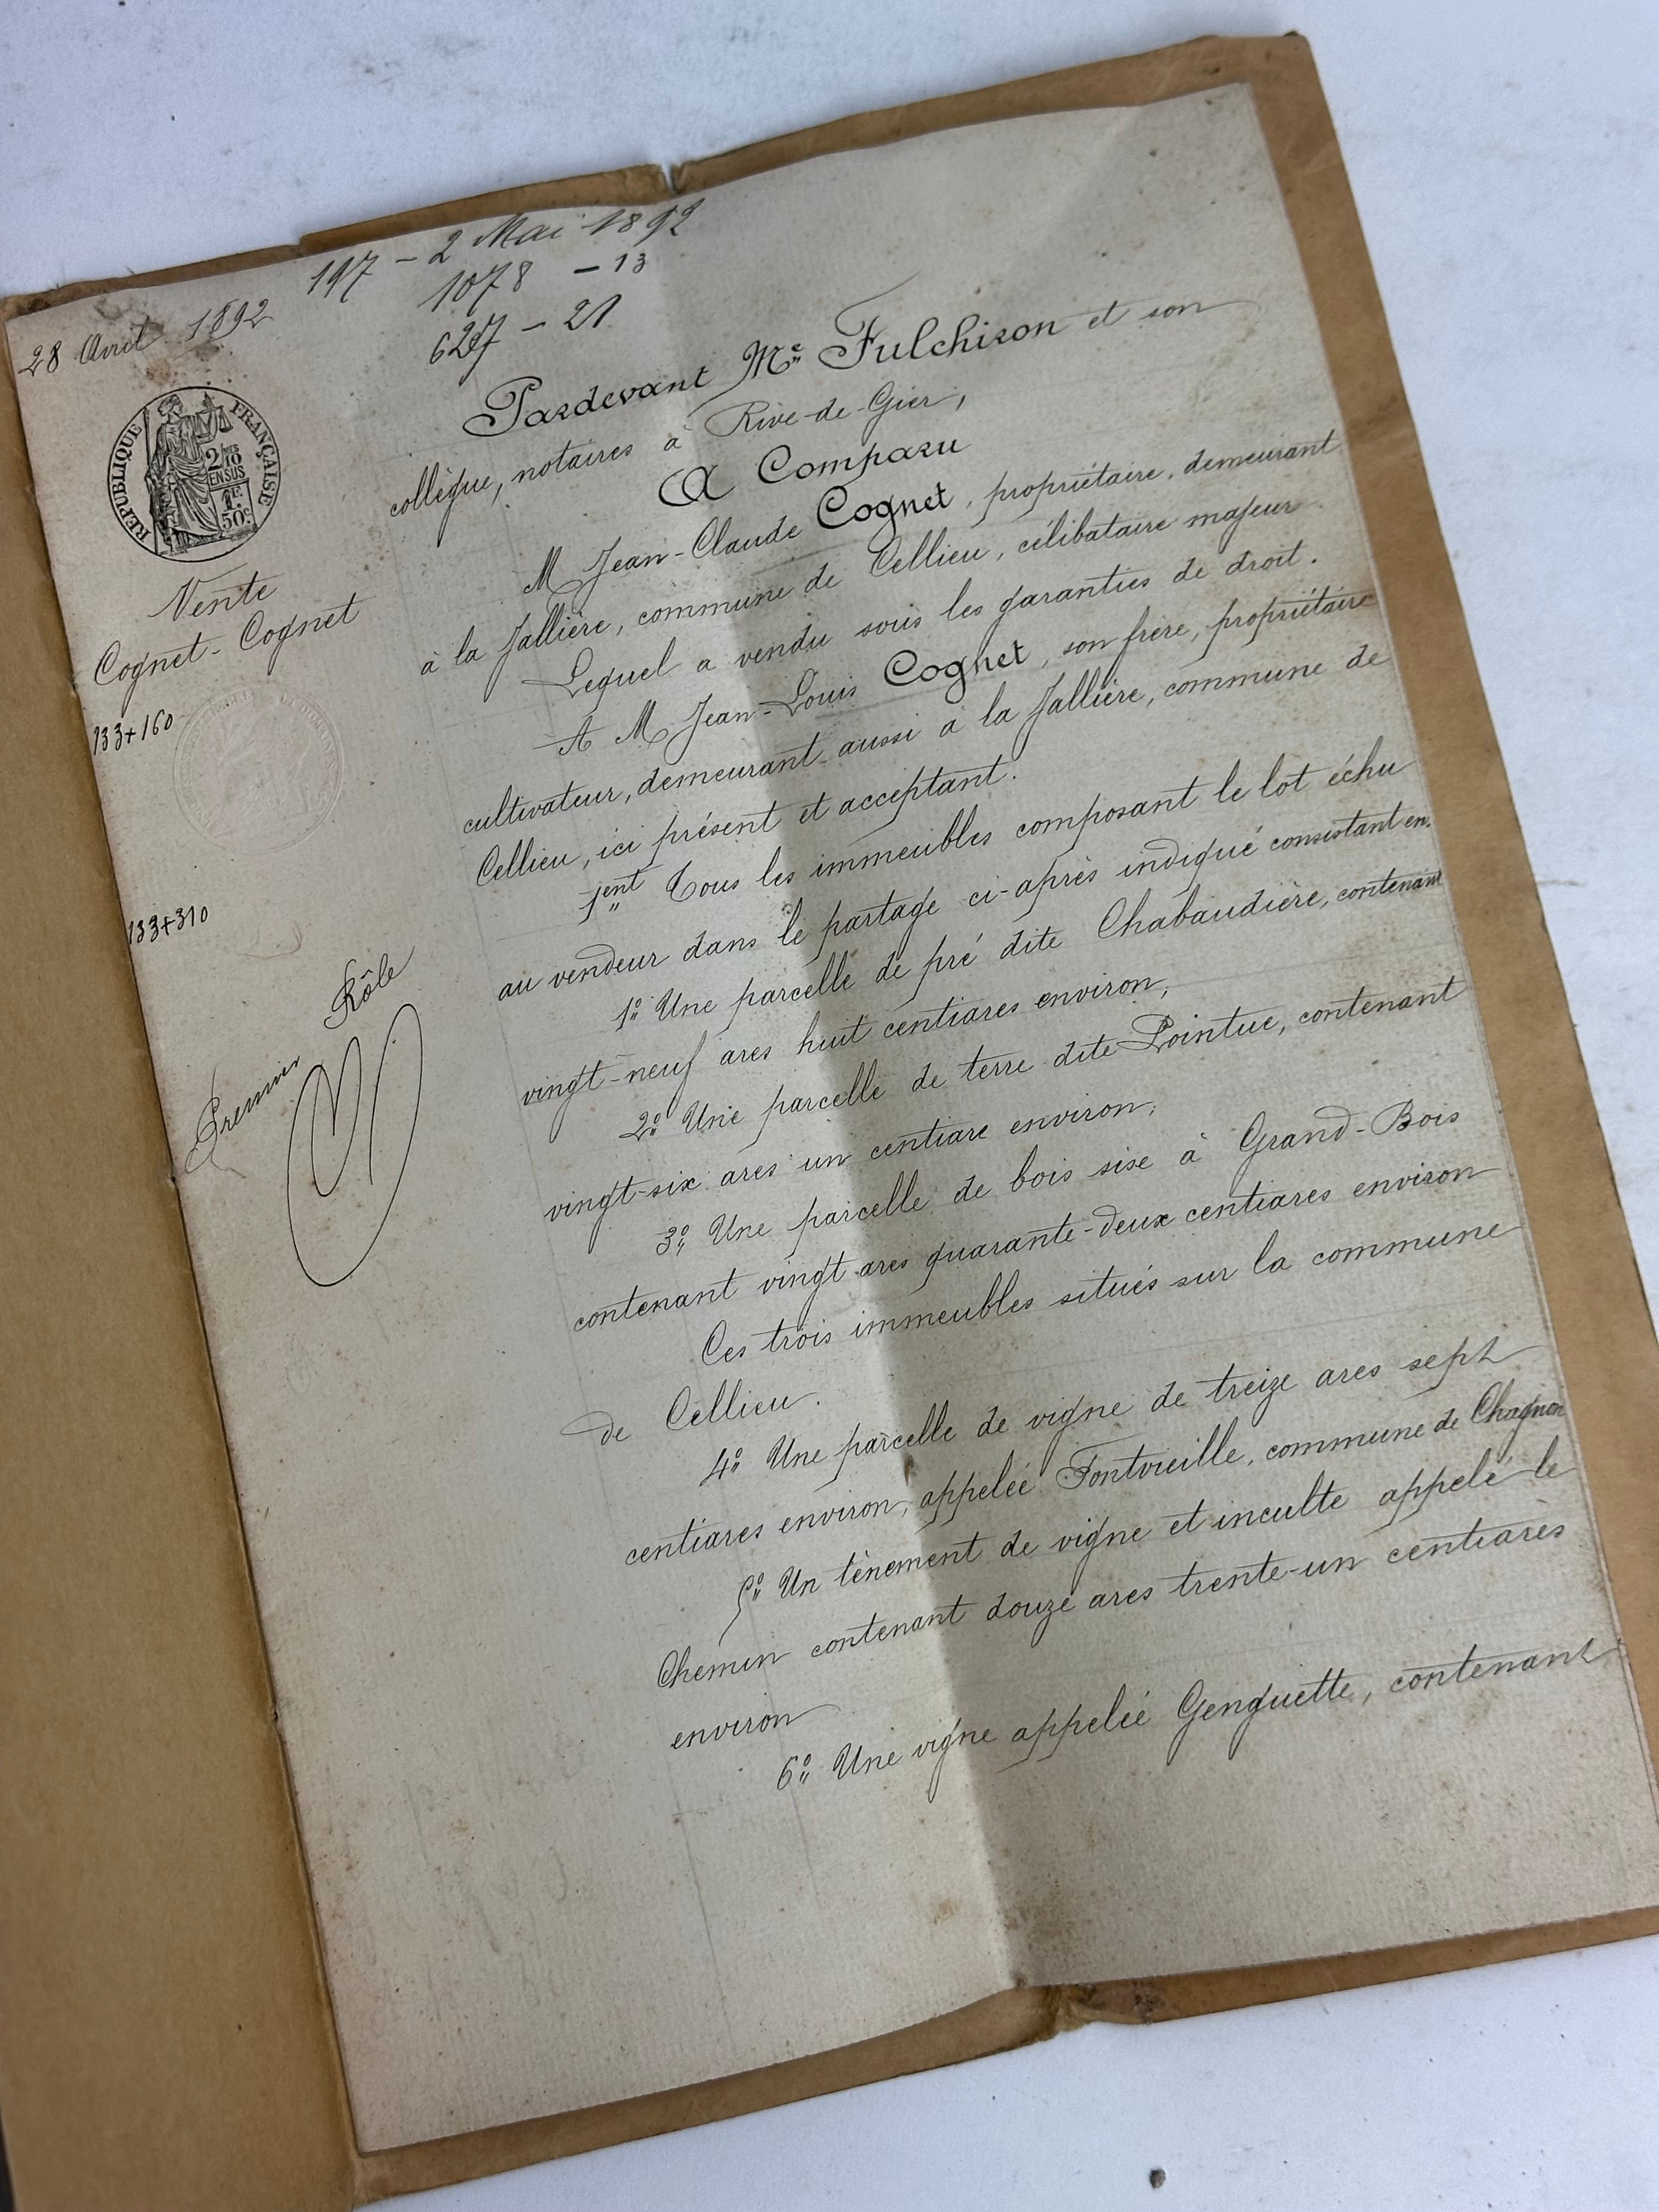 28 Avril 1892
197 - 2 Mai 1892
1078 - 13
627 - 21
RÉPUBLIQUE FRANÇAISE
2/10
EN SUS
1F
50c
Vente
Cognet - Cognet
133+160
133+310
Premier Rôle
Pardevant Me Fulchiron et son
collègue, notaires à Rive-de-Gier,
A Comparu
M Jean-Claude Cognet, propriétaire, demeurant
à la Jallière, commune de Cellieu, célibataire majeur.
Lequel a vendu sous les garanties de droit.
A M Jean-Louis Cognet, son frère, propriétaire
cultivateur, demeurant aussi à la Jallière, commune de
Cellieu, ici présent et acceptant.
1ent Tous les immeubles composant le lot échu
au vendeur dans le partage ci-après indiqué consistant en.
1o Une parcelle de pré dite Chabaudière, contenant
vingt-neuf ares huit centiares environ;
2o Une parcelle de terre dite Pointue, contenant
vingt-six ares un centiare environ;
3o Une parcelle de bois sise à Grand-Bois
contenant vingt ares quarante-deux centiares environ
Ces trois immeubles situés sur la commune
de Cellieu.
4o Une parcelle de vigne de treize ares sept
centiares environ, appelée Fontvieille, commune de Chagnon
5o Un tènement de vigne et inculte appelé le
Chemin contenant douze ares trente-un centiares
environ
6o Une vigne appelée Genguette, contenant